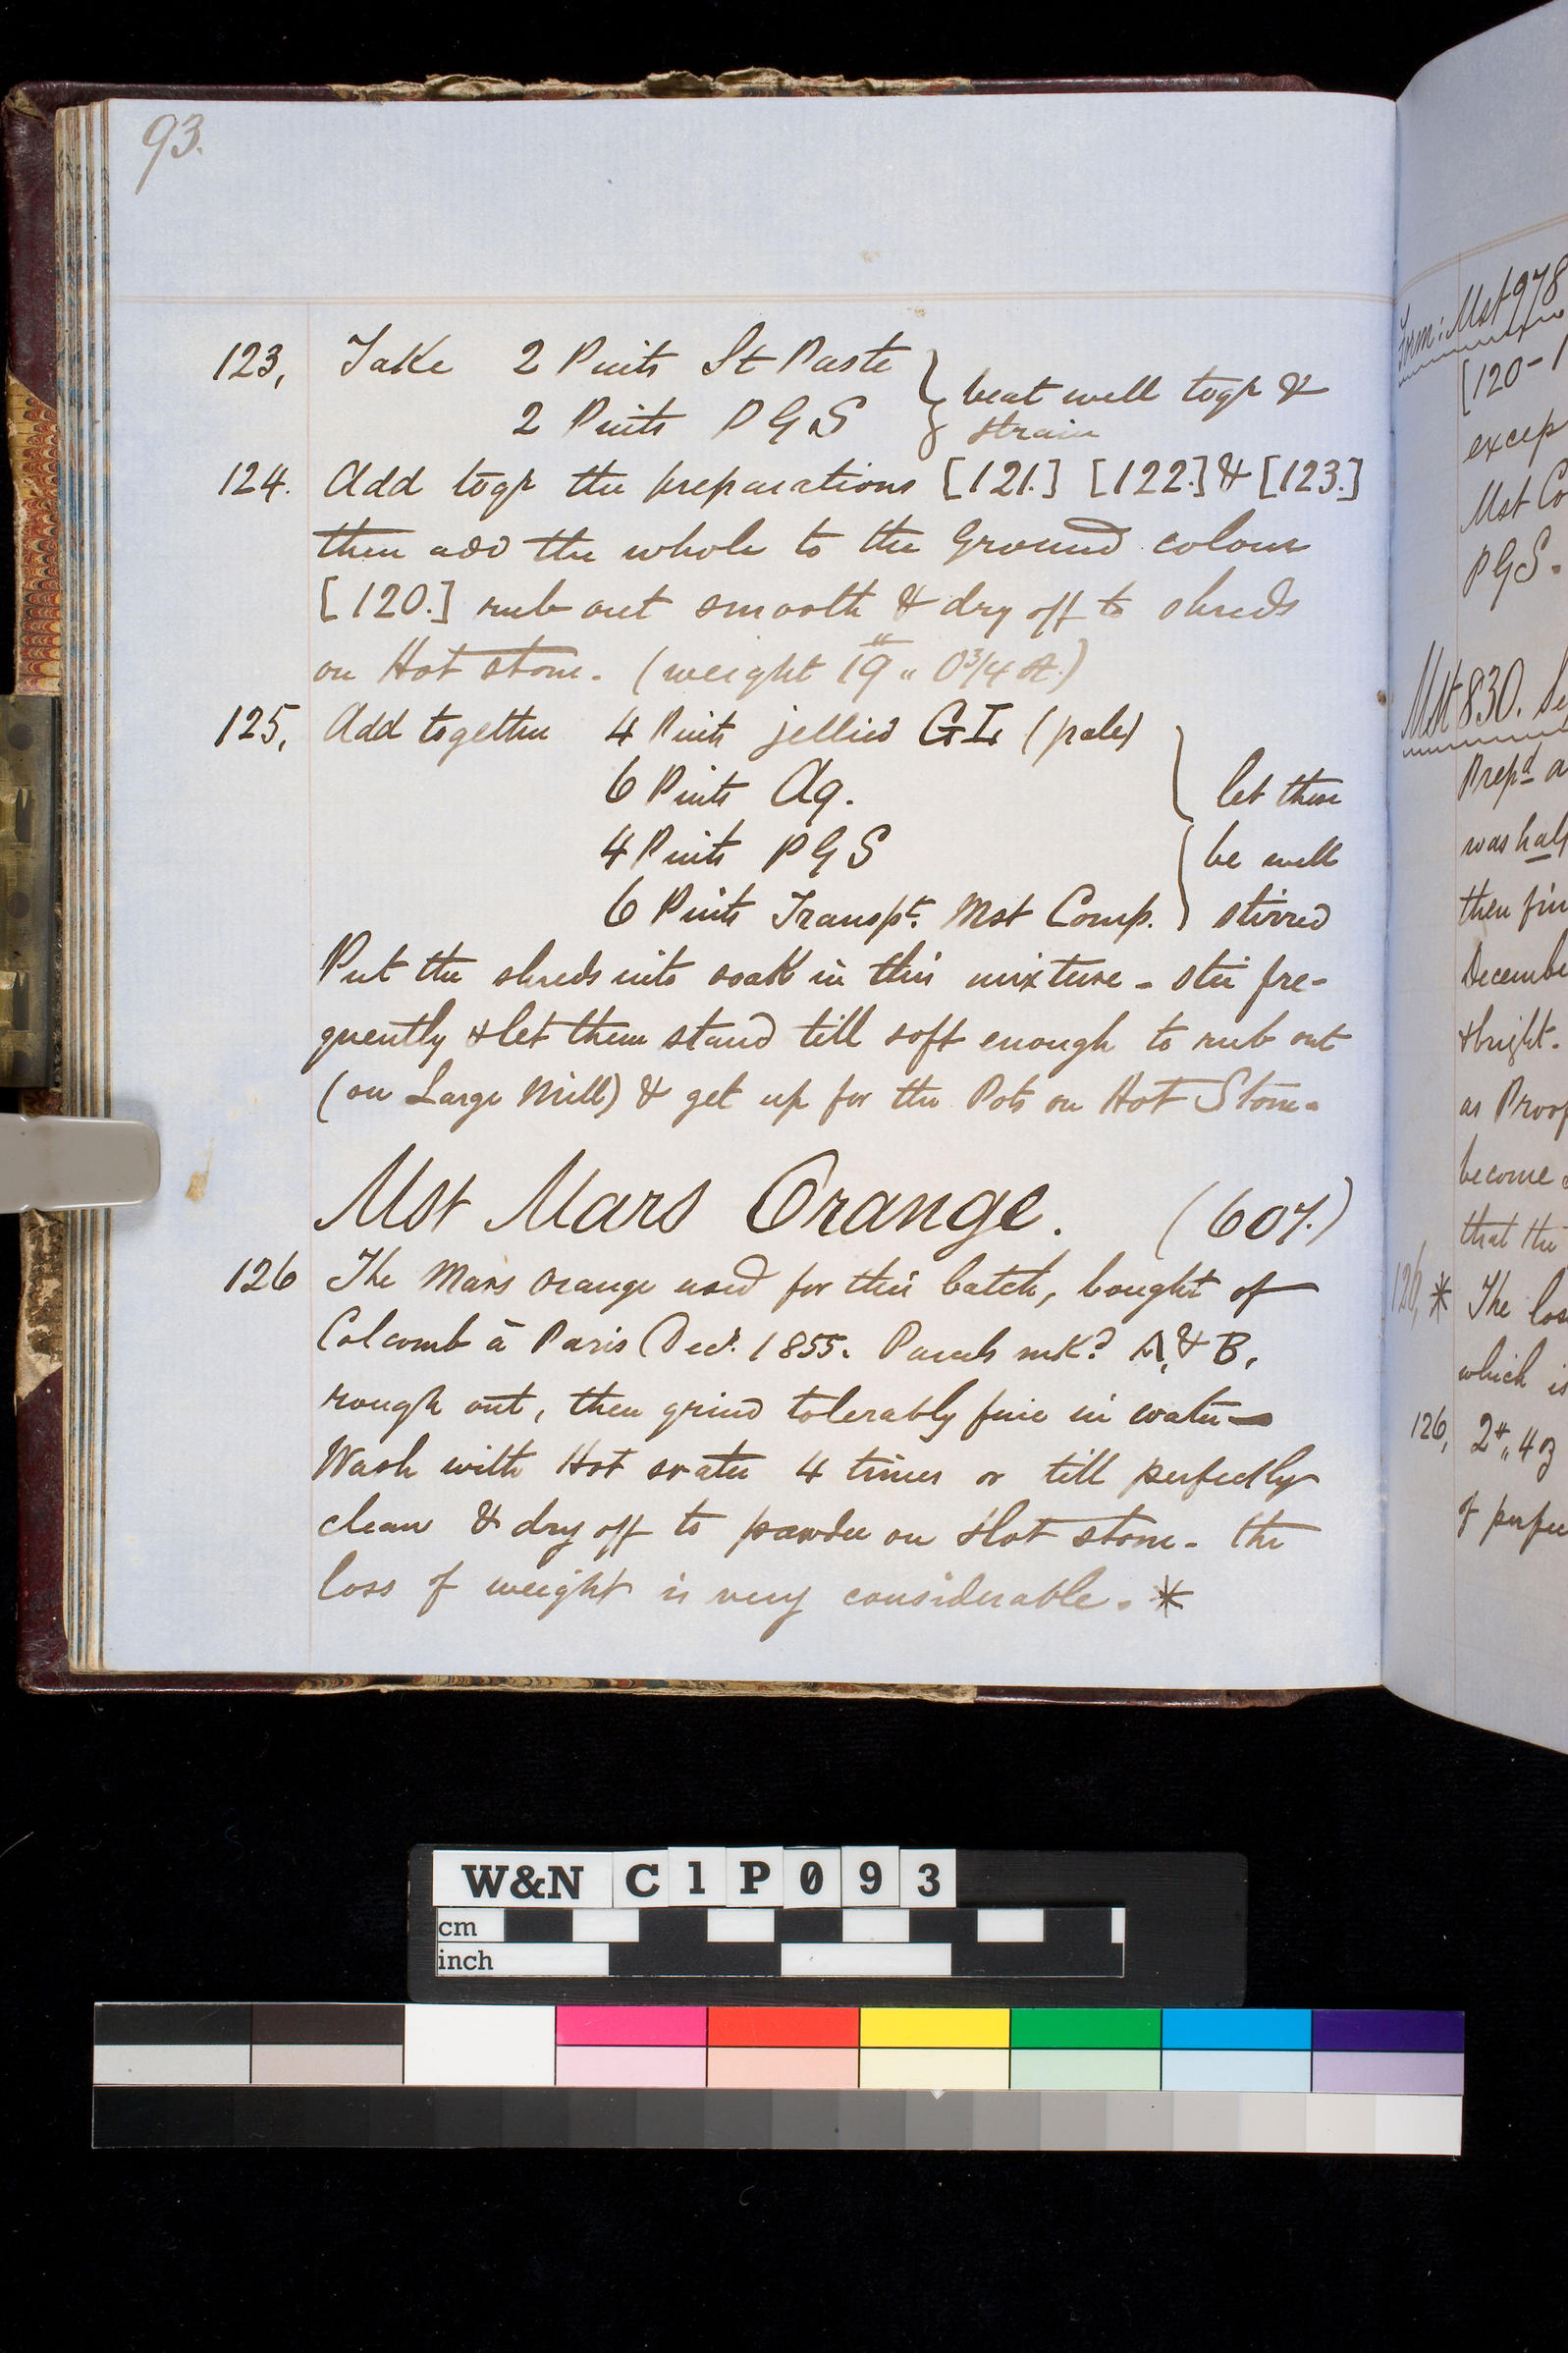 93.
123, Take 2 Pints St Paste } beat well togr &
2 Pints P G S } strain
124. Add togr the preparations [121.] [122.] & [123.]
then add the whole to the Ground colour
[120.] rub out smooth & dry off to shreds
on Hot stone. (weight 19 " 0 3/4 oz.)
125, Add together 4 Pints jellied GI (pale)
6 Pints Aq. let these
4 Pints P G S be well
6 Pints Transpt. Mst Comp. stirred
Put the shreds into soak in this mixture - stir fre-
quently & let them stand till soft enough to rub out
(on Large Mill) & get up for the Pots on Hot Stone.
Mst Mars Orange. (607.)
126 The Mars Orange used for this batch, bought of
Colcomb à Paris Decr. 1855. Parcels mkd A, & B,
rough out, then grind tolerably fine in water
Wash with Hot water 4 times or till perfectly
clean & dry off to powder on Hot stone. the
loss of weight is very considerable. *
Mst 978
[120-1
excep
Mst Co
P G S.
Mst 830. Se
Prepd a
was half
then fin
Decembe
& bright.
as Proof
become
that the
126, * The los
which is
126, 2 " 4 oz
of perfec
W&N C1P093
cm
inch